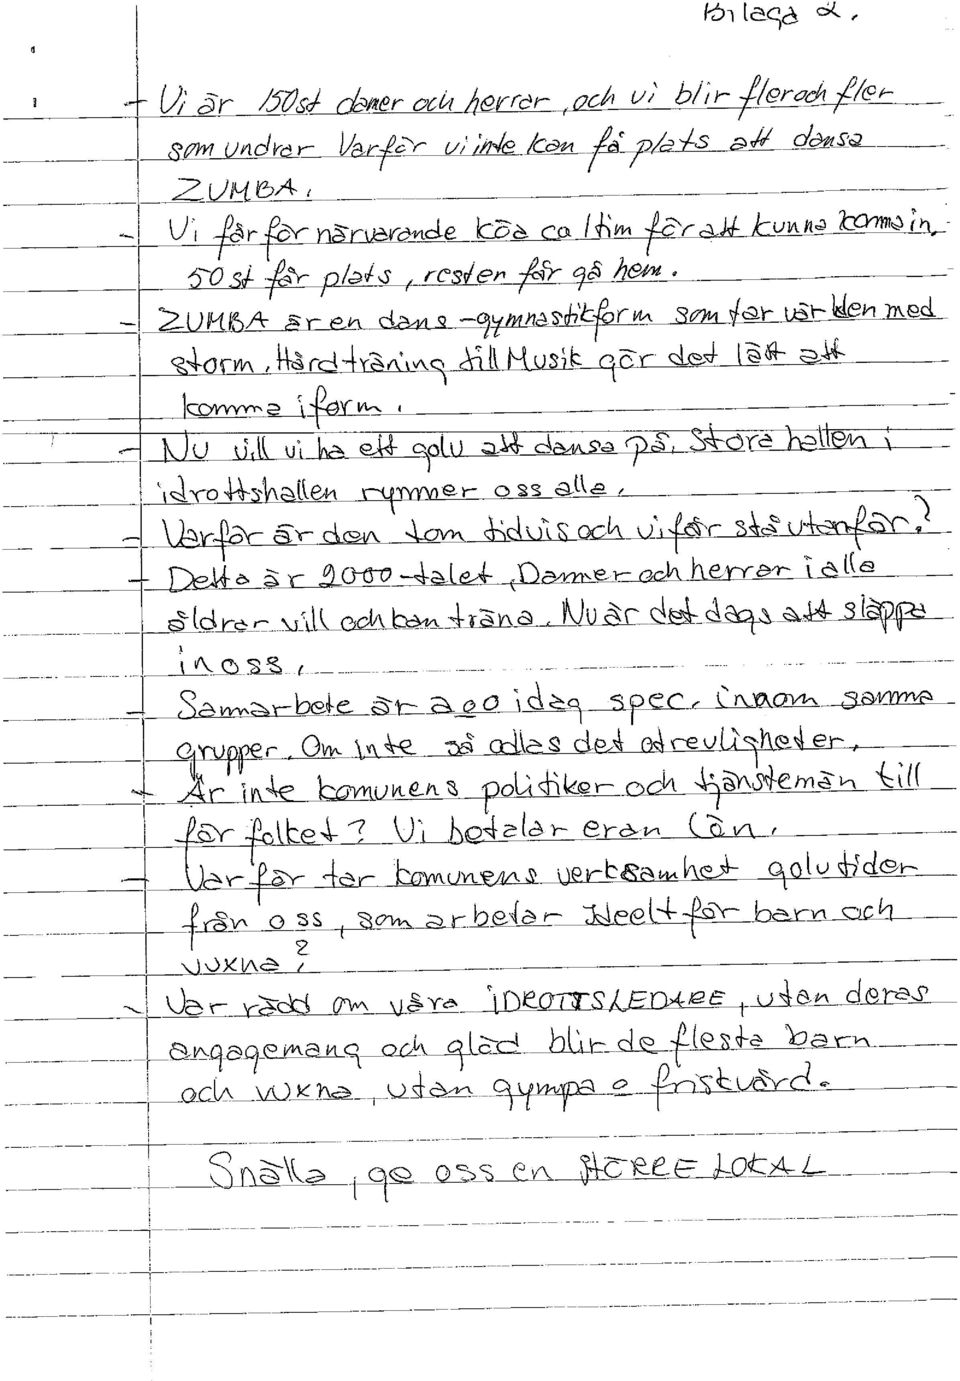 Bilaga 2.
- Vi är 150st damer och herrar, och vi blir fler och fler
som undrar Varför vi inte kan få plats att dansa
ZUMBA.
- Vi får för närvarande köa ca 1tim för att kunna komma in.
50 st får plats, resten får gå hem.
- ZUMBA är en dans-gymnastikform som tar världen med
storm. Hård träning till Musik gör det lätt att
komma i form.
- Nu vill vi ha ett golv att dansa på. Stora hallen i
idrottshallen rymmer oss alla.
- Varför är den tom tidvis och vi får stå utanför?
- Detta är 2000-talet, Damer och herrar i alla
åldrar vill och kan träna. Nu är det dags att släppa
in oss.
- Samarbete är a och o idag spec. innom samma
grupper. Om inte så odlas det otrevligheter.
- Är inte komunens politiker och tjänstemän till
för folket? Vi betalar eran lön.
- Varför tar komunens verksamhet golvtider
från oss, som arbetar Ideelt för barn och
vuxna?
- Var rädd om våra IDROTTSLEDARE, utan deras
angagemang och gläd blir de flesta barn
och vuxna, utan gympa o friskvård.
Snälla, ge oss en STÖRRE LOKAL